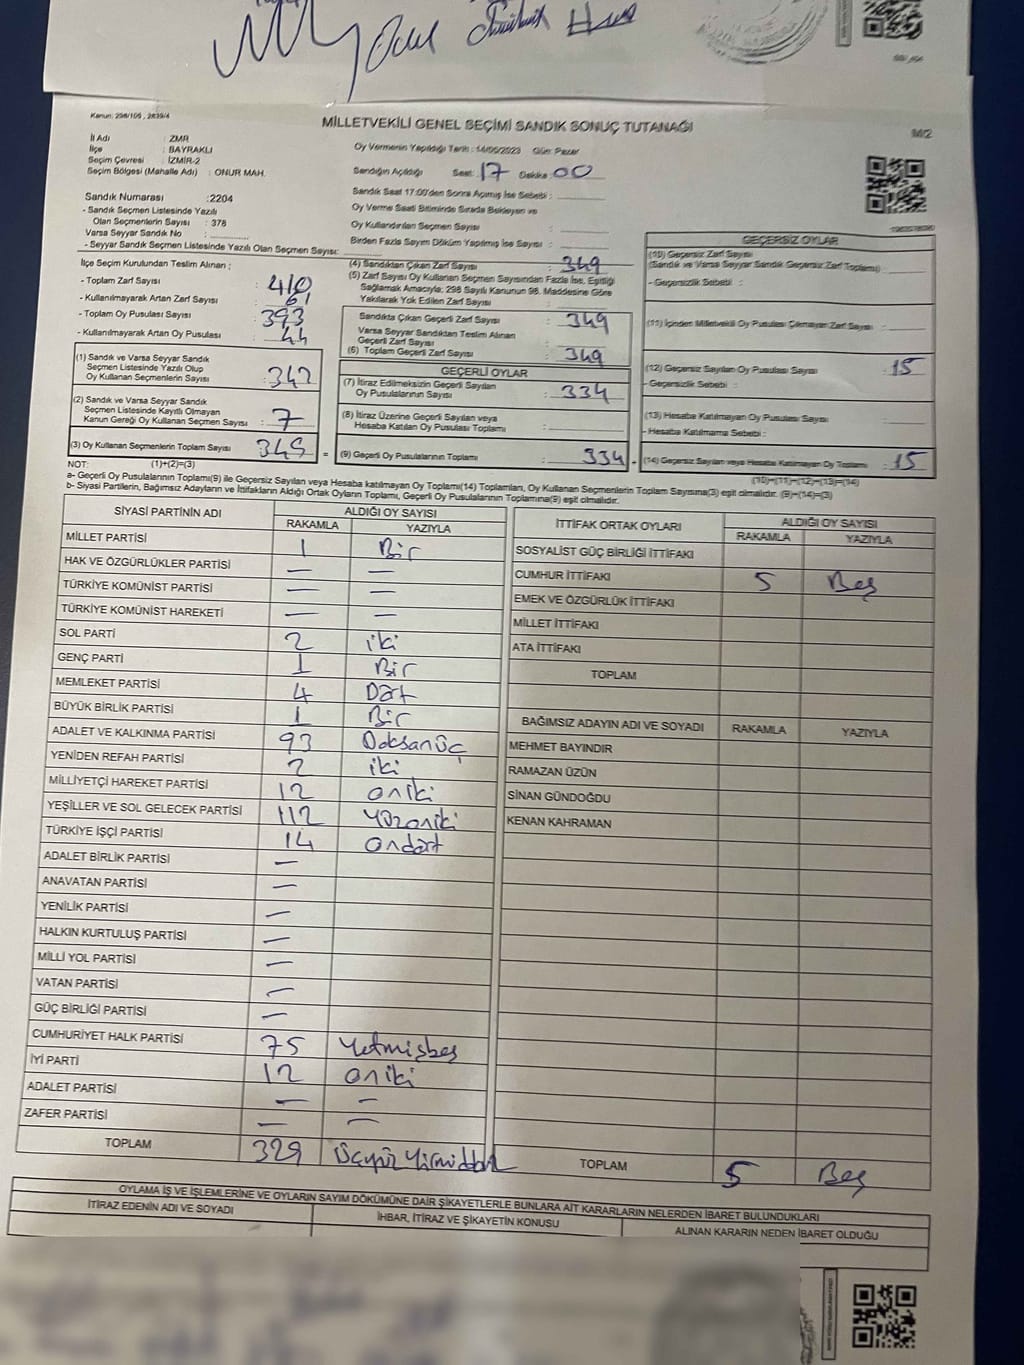 Kanun: 298/105 , 2839/4
MİLLETVEKİLİ GENEL SEÇİMİ SANDIK SONUÇ TUTANAĞI
M2
İl Adı : ZMR
İlçe : BAYRAKLI
Seçim Çevresi : İZMİR-2
Seçim Bölgesi (Mahalle Adı) : ONUR MAH.
Oy Vermenin Yapıldığı Tarih : 14/05/2023 Gün: Pazar
Sandığın Açıldığı Saat: 17 Dakika: 00
Sandık Saat 17:00'den Sonra Açımış İse Sebebi :
Oy Verme Saati Bitiminde Sırada Bekleyen ve
Oy Kullandırılan Seçmen Sayısı :
Birden Fazla Sayım Döküm Yapılmış İse Sayısı :
Sandık Numarası :2204
- Sandık Seçmen Listesinde Yazılı
Olan Seçmenlerin Sayısı : 378
Varsa Seyyar Sandık No :
- Seyyar Sandık Seçmen Listesinde Yazılı Olan Seçmen Sayısı:
İlçe Seçim Kurulundan Teslim Alınan ;
- Toplam Zarf Sayısı : 410
- Kullanılmayarak Artan Zarf Sayısı : 61
- Toplam Oy Pusulası Sayısı : 393
- Kullanılmayarak Artan Oy Pusulası : 44
(1) Sandık ve Varsa Seyyar Sandık
Seçmen Listesinde Yazılı Olup
Oy Kullanan Seçmenlerin Sayısı : 342
(2) Sandık ve Varsa Seyyar Sandık
Seçmen Listesinde Kayıtlı Olmayan
Kanun Gereği Oy Kullanan Seçmen Sayısı : 7
(3) Oy Kullanan Seçmenlerin Toplam Sayısı : 349
(4) Sandıktan Çıkan Zarf Sayısı : 349
(5) Zarf Sayısı Oy Kullanan Seçmen Sayısından Fazla İse, Eşitliği
Sağlamak Amacıyla; 298 Sayılı Kanunun 98. Maddesine Göre
Yakılarak Yok Edilen Zarf Sayısı :
Sandıkta Çıkan Geçerli Zarf Sayısı : 349
Varsa Seyyar Sandıktan Teslim Alınan
Geçerli Zarf Sayısı :
(6) Toplam Geçerli Zarf Sayısı : 349
GEÇERLİ OYLAR
(7) İtiraz Edilmeksizin Geçerli Sayılan
Oy Pusulalarının Sayısı : 334
(8) İtiraz Üzerine Geçerli Sayılan veya
Hesaba Katılan Oy Pusulası Toplamı :
= (9) Geçerli Oy Pusulalarının Toplamı : 334
GEÇERSİZ OYLAR
(10) Geçersiz Zarf Sayısı
(Sandık ve Varsa Seyyar Sandık Geçersiz Zarf Toplamı) :
- Geçersizlik Sebebi :
(11) İçinden Milletvekili Oy Pusulası Çıkmayan Zarf Sayısı :
(12) Geçersiz Sayılan Oy Pusulası Sayısı : 15
- Geçersizlik Sebebi :
(13) Hesaba Katılmayan Oy Pusulası Sayısı :
- Hesaba Katılmama Sebebi :
(14) Geçersiz Sayılan veya Hesaba Katılmayan Oy Toplamı : 15
NOT: (1)+(2)=(3)
(10)+(11)+(12)+(13)=(14)
a- Geçerli Oy Pusulalarının Toplamı(9) ile Geçersiz Sayılan veya Hesaba katılmayan Oy Toplamı(14) Toplamları, Oy Kullanan Seçmenlerin Toplam Sayısına(3) eşit olmalıdır. (9)+(14)=(3)
b- Siyasi Partilerin, Bağımsız Adayların ve İttifakların Aldığı Ortak Oyların Toplamı, Geçerli Oy Pusulalarının Toplamına(9) eşit olmalıdır.
SİYASİ PARTİNİN ADI ALDIĞI OY SAYISI
RAKAMLA YAZIYLA
MİLLET PARTİSİ 1 Bir
HAK VE ÖZGÜRLÜKLER PARTİSİ — —
TÜRKİYE KOMÜNİST PARTİSİ — —
TÜRKİYE KOMÜNİST HAREKETİ — —
SOL PARTİ 2 iki
GENÇ PARTİ 1 Bir
MEMLEKET PARTİSİ 4 Dört
BÜYÜK BİRLİK PARTİSİ 1 Bir
ADALET VE KALKINMA PARTİSİ 93 Doksanüç
YENİDEN REFAH PARTİSİ 2 iki
MİLLİYETÇİ HAREKET PARTİSİ 12 oniki
YEŞİLLER VE SOL GELECEK PARTİSİ 112 Yüzoniki
TÜRKİYE İŞÇİ PARTİSİ 14 ondört
ADALET BİRLİK PARTİSİ —
ANAVATAN PARTİSİ —
YENİLİK PARTİSİ —
HALKIN KURTULUŞ PARTİSİ —
MİLLİ YOL PARTİSİ —
VATAN PARTİSİ —
GÜÇ BİRLİĞİ PARTİSİ —
CUMHURİYET HALK PARTİSİ 75 Yetmişbeş
İYİ PARTİ 12 oniki
ADALET PARTİSİ — —
ZAFER PARTİSİ — —
TOPLAM 329
İTTİFAK ORTAK OYLARI ALDIĞI OY SAYISI
RAKAMLA YAZIYLA
SOSYALİST GÜÇ BİRLİĞİ İTTİFAKI
CUMHUR İTTİFAKI 5 Beş
EMEK VE ÖZGÜRLÜK İTTİFAKI
MİLLET İTTİFAKI
ATA İTTİFAKI
TOPLAM
BAĞIMSIZ ADAYIN ADI VE SOYADI RAKAMLA YAZIYLA
MEHMET BAYINDIR
RAMAZAN ÜZÜN
SİNAN GÜNDOĞDU
KENAN KAHRAMAN
TOPLAM 5 Beş
OYLAMA İŞ VE İŞLEMLERİNE VE OYLARIN SAYIM DÖKÜMÜNE DAİR ŞİKAYETLERLE BUNLARA AİT KARARLARIN NELERDEN İBARET BULUNDUKLARI
İTİRAZ EDENİN ADI VE SOYADI İHBAR, İTİRAZ VE ŞİKAYETİN KONUSU ALINAN KARARIN NEDEN İBARET OLDUĞU